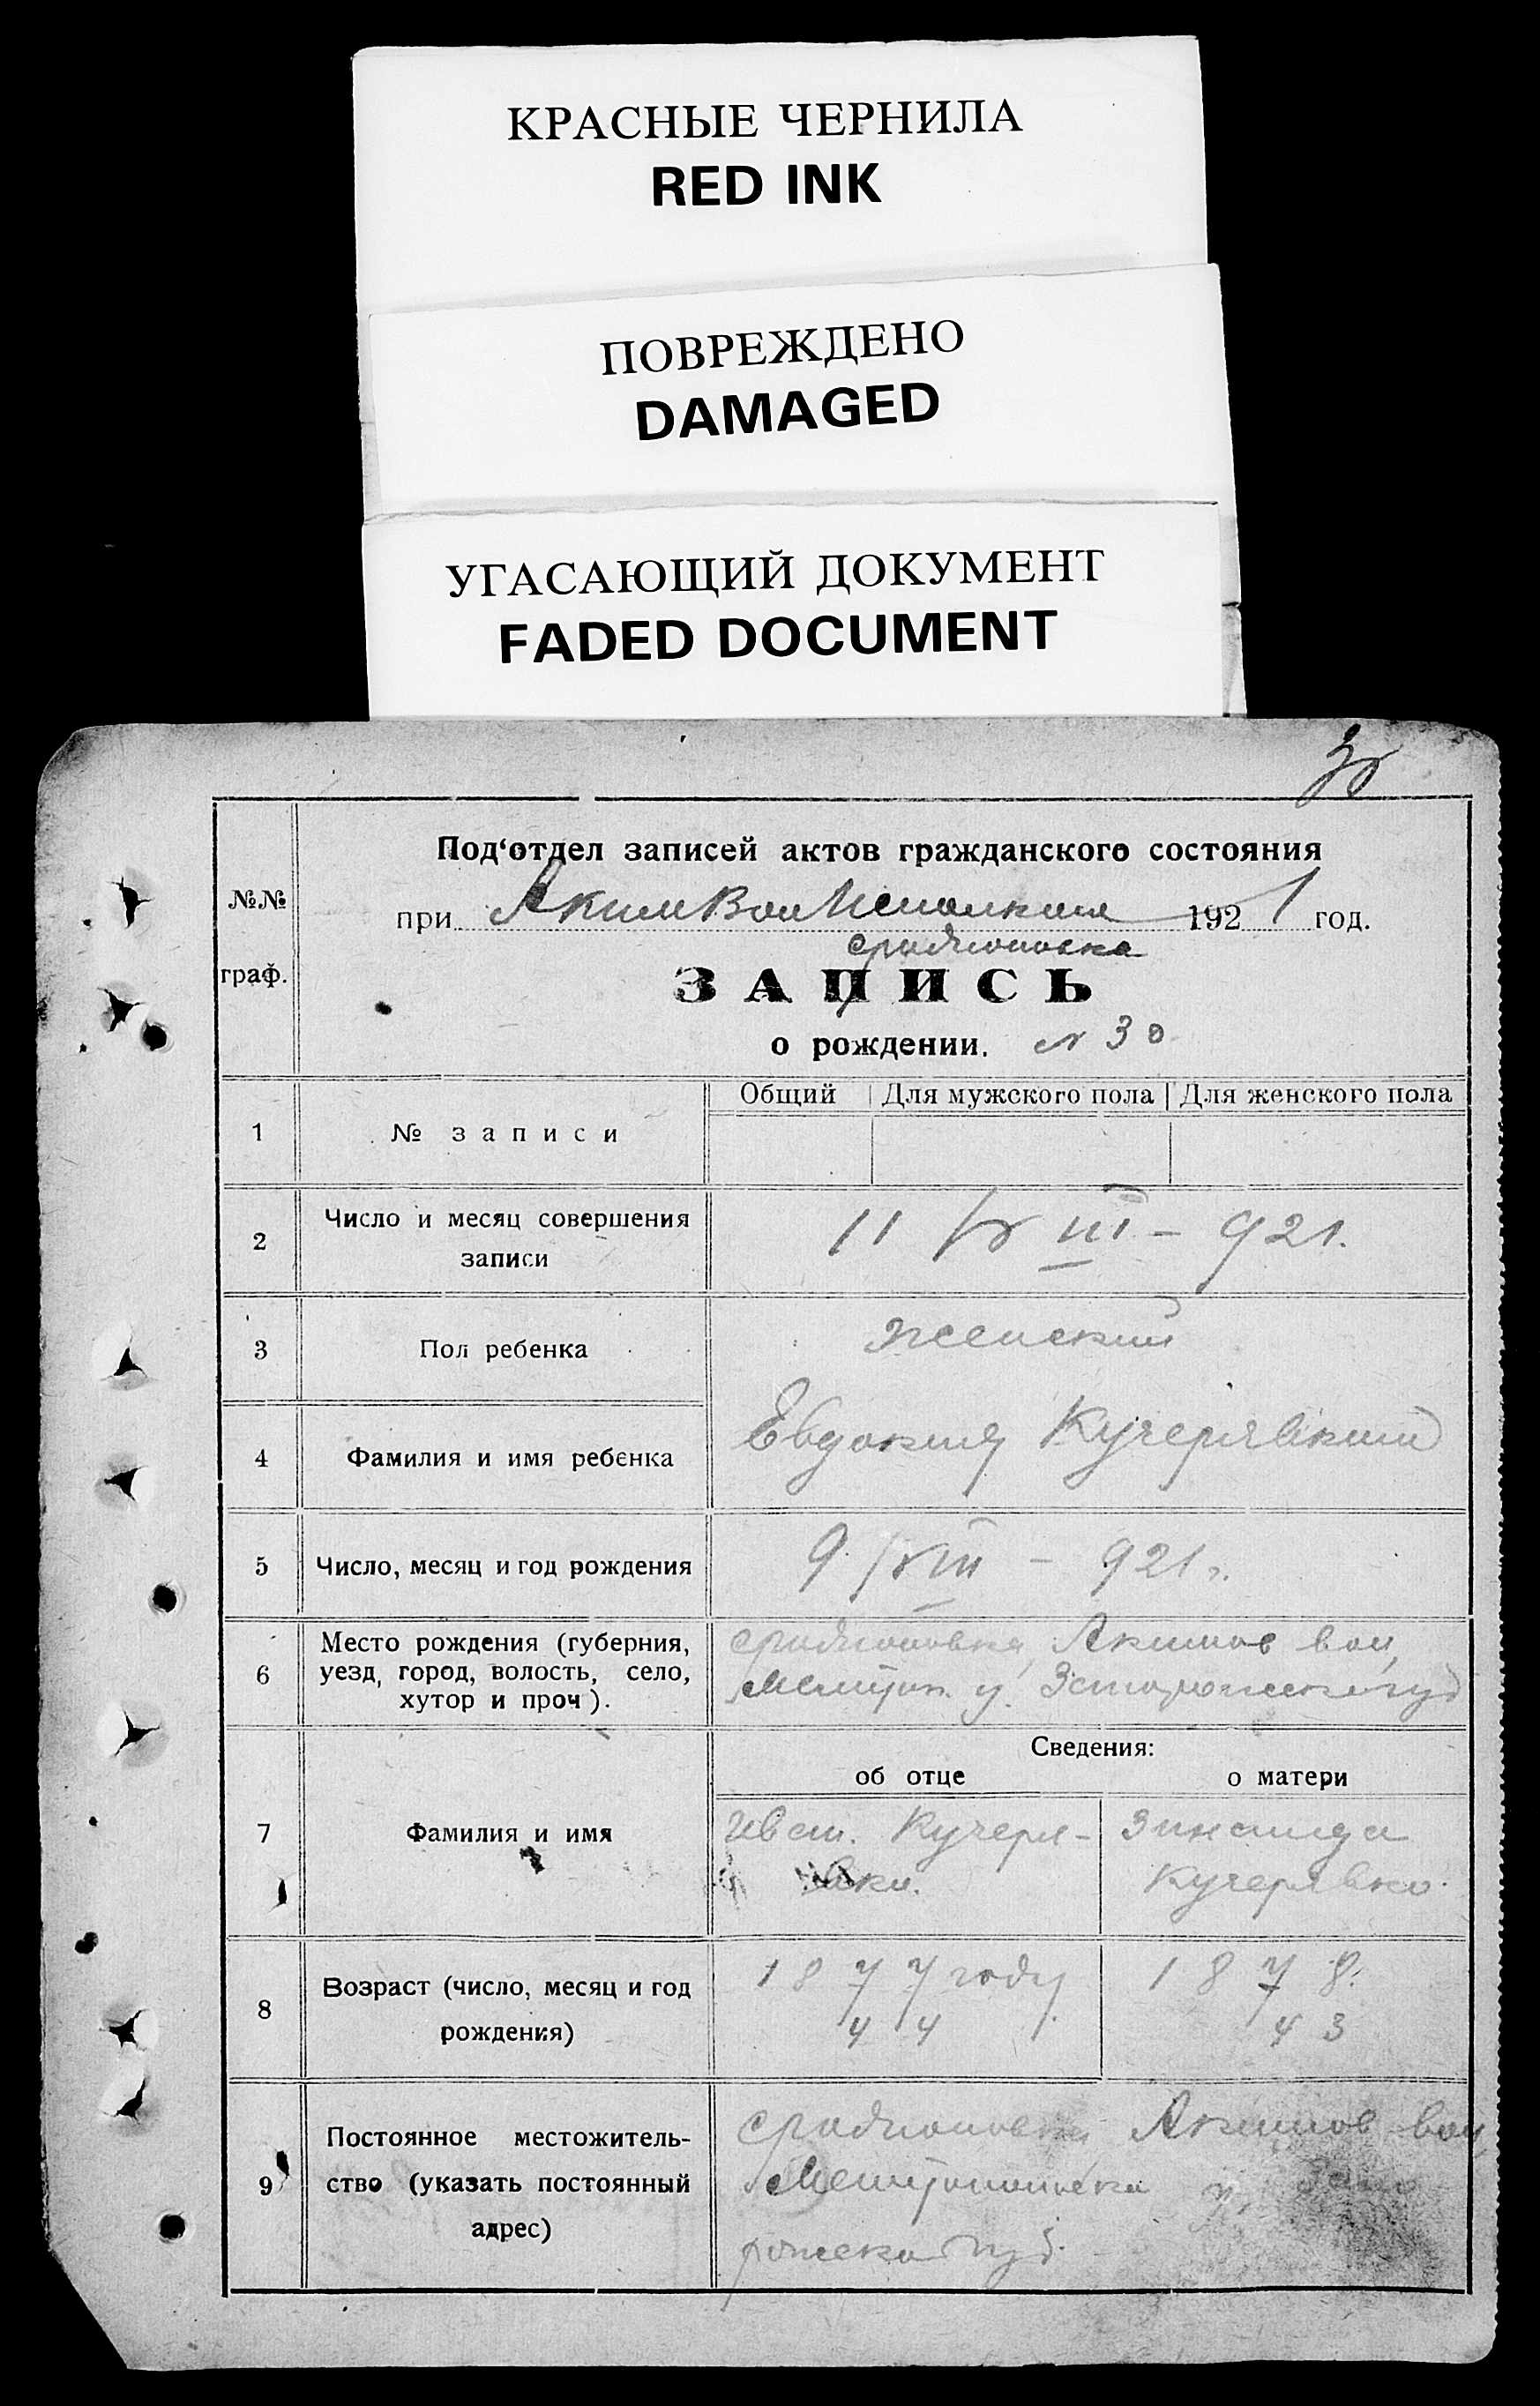 КРАСНЫЕ ЧЕРНИЛА
RED INK
ПОВРЕЖДЕНО
DAMAGED
УГАСАЮЩИЙ ДОКУМЕНТ
FADED DOCUMENT
Под‘отдел записей актов гражданского состояния
№№
при Аким Вол Исполкоме 1921 год.
с Родионовка
граф.
ЗАПИСЬ
о рождении. № 30
Общий Для мужского пола Для женского пола
1 № записи
2 Число и месяц совершения записи 11/VIII – 921.
3 Пол ребенка женский
4 Фамилия и имя ребенка Евдокия Кучерявский
5 Число, месяц и год рождения 9/VIII – 921 г.
6 Место рождения (губерния, с Родионовка, Акимов вол,
уезд, город, волость, село, Мелитоп. у. Запорожской губ
хутор и проч).
Сведения:
об отце о матери
7 Фамилия и имя Иван. Кучеря- Зинаида
вки. Кучерявко.
8 Возраст (число, месяц и год 1877 году 1878.
рождения) 44 43
Постоянное местожитель- с Родионовка Акимов вол
9 ство (указать постоянный Мелитопольска у. Запо
адрес) рожской губ.